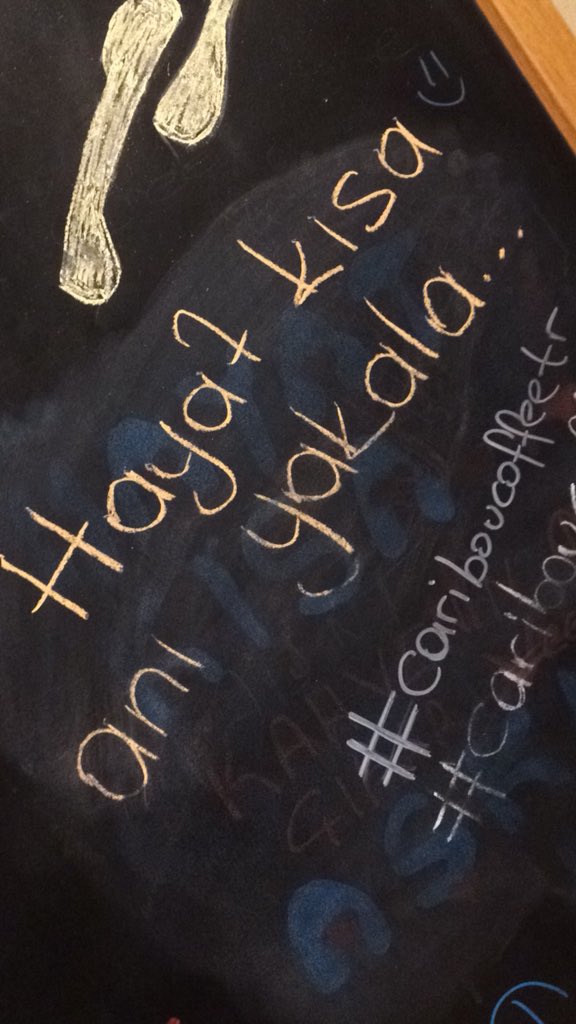 Hayat kısa :)
anı yakala...
#cariboucoffeetr